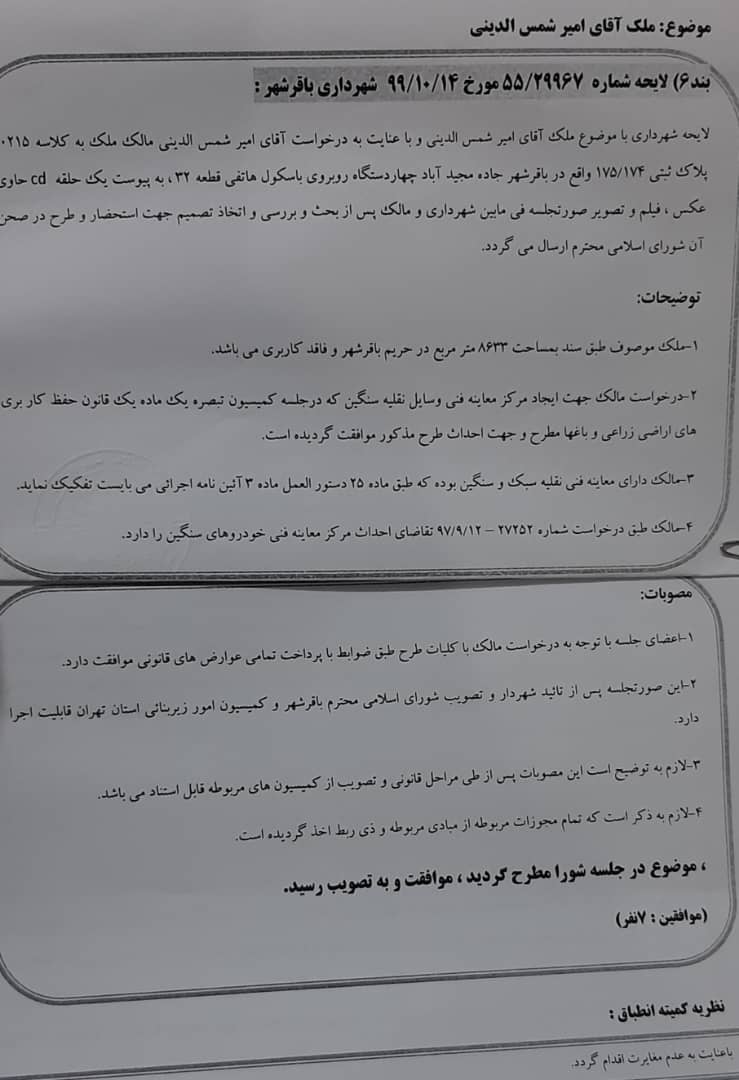 موضوع: ملک آقای امیر شمس الدینی
بند۶) لایحه شماره ۵۵/۲۹۹۶۷ مورخ ۹۹/۱۰/۱۴ شهرداری باقرشهر :
لایحه شهرداری با موضوع ملک آقای امیر شمس الدینی و با عنایت به درخواست آقای امیر شمس الدینی مالک ملک به کلاسه ۰۲۱۵
پلاک ثبتی ۱۷۵/۱۷۴ واقع در باقرشهر جاده مجید آباد چهاردستگاه روبروی باسکول هاتفی قطعه ۳۲ ، به پیوست یک حلقه cd حاوی
عکس ، فیلم و تصویر صورتجلسه فی مابین شهرداری و مالک پس از بحث و بررسی و اتخاذ تصمیم جهت استحضار و طرح در صحن
آن شورای اسلامی محترم ارسال می گردد.
توضیحات:
۱-ملک موصوف طبق سند بمساحت ۸۶۳۳ متر مربع در حریم باقرشهر و فاقد کاربری می باشد.
۲-درخواست مالک جهت ایجاد مرکز معاینه فنی وسایل نقلیه سنگین که درجلسه کمیسیون تبصره یک ماده یک قانون حفظ کار بری
های اراضی زراعی و باغها مطرح و جهت احداث طرح مذکور موافقت گردیده است.
۳-مالک دارای معاینه فنی نقلیه سبک و سنگین بوده که طبق ماده ۲۵ دستور العمل ماده ۳ آئین نامه اجرائی می بایست تفکیک نماید.
۴-مالک طبق درخواست شماره ۲۷۲۵۲ – ۹۷/۹/۱۲ تقاضای احداث مرکز معاینه فنی خودروهای سنگین را دارد.
مصوبات:
۱-اعضای جلسه با توجه به درخواست مالک با کلیات طرح طبق ضوابط با پرداخت تمامی عوارض های قانونی موافقت دارد.
۲-این صورتجلسه پس از تائید شهردار و تصویب شورای اسلامی محترم باقرشهر و کمیسیون امور زیربنائی استان تهران قابلیت اجرا
دارد.
۳-لازم به توضیح است این مصوبات پس از طی مراحل قانونی و تصویب از کمیسیون های مربوطه قابل استناد می باشد.
۴-لازم به ذکر است که تمام مجوزات مربوطه از مبادی مربوطه و ذی ربط اخذ گردیده است.
، موضوع در جلسه شورا مطرح گردید ، موافقت و به تصویب رسید.
(موافقین : ۷نفر)
نظریه کمیته انطباق :
باعنایت به عدم مغایرت اقدام گردد.